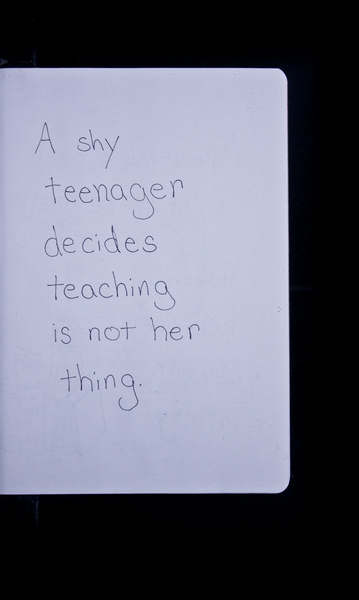 A shy
teenager
decides
teaching
is not her
thing.